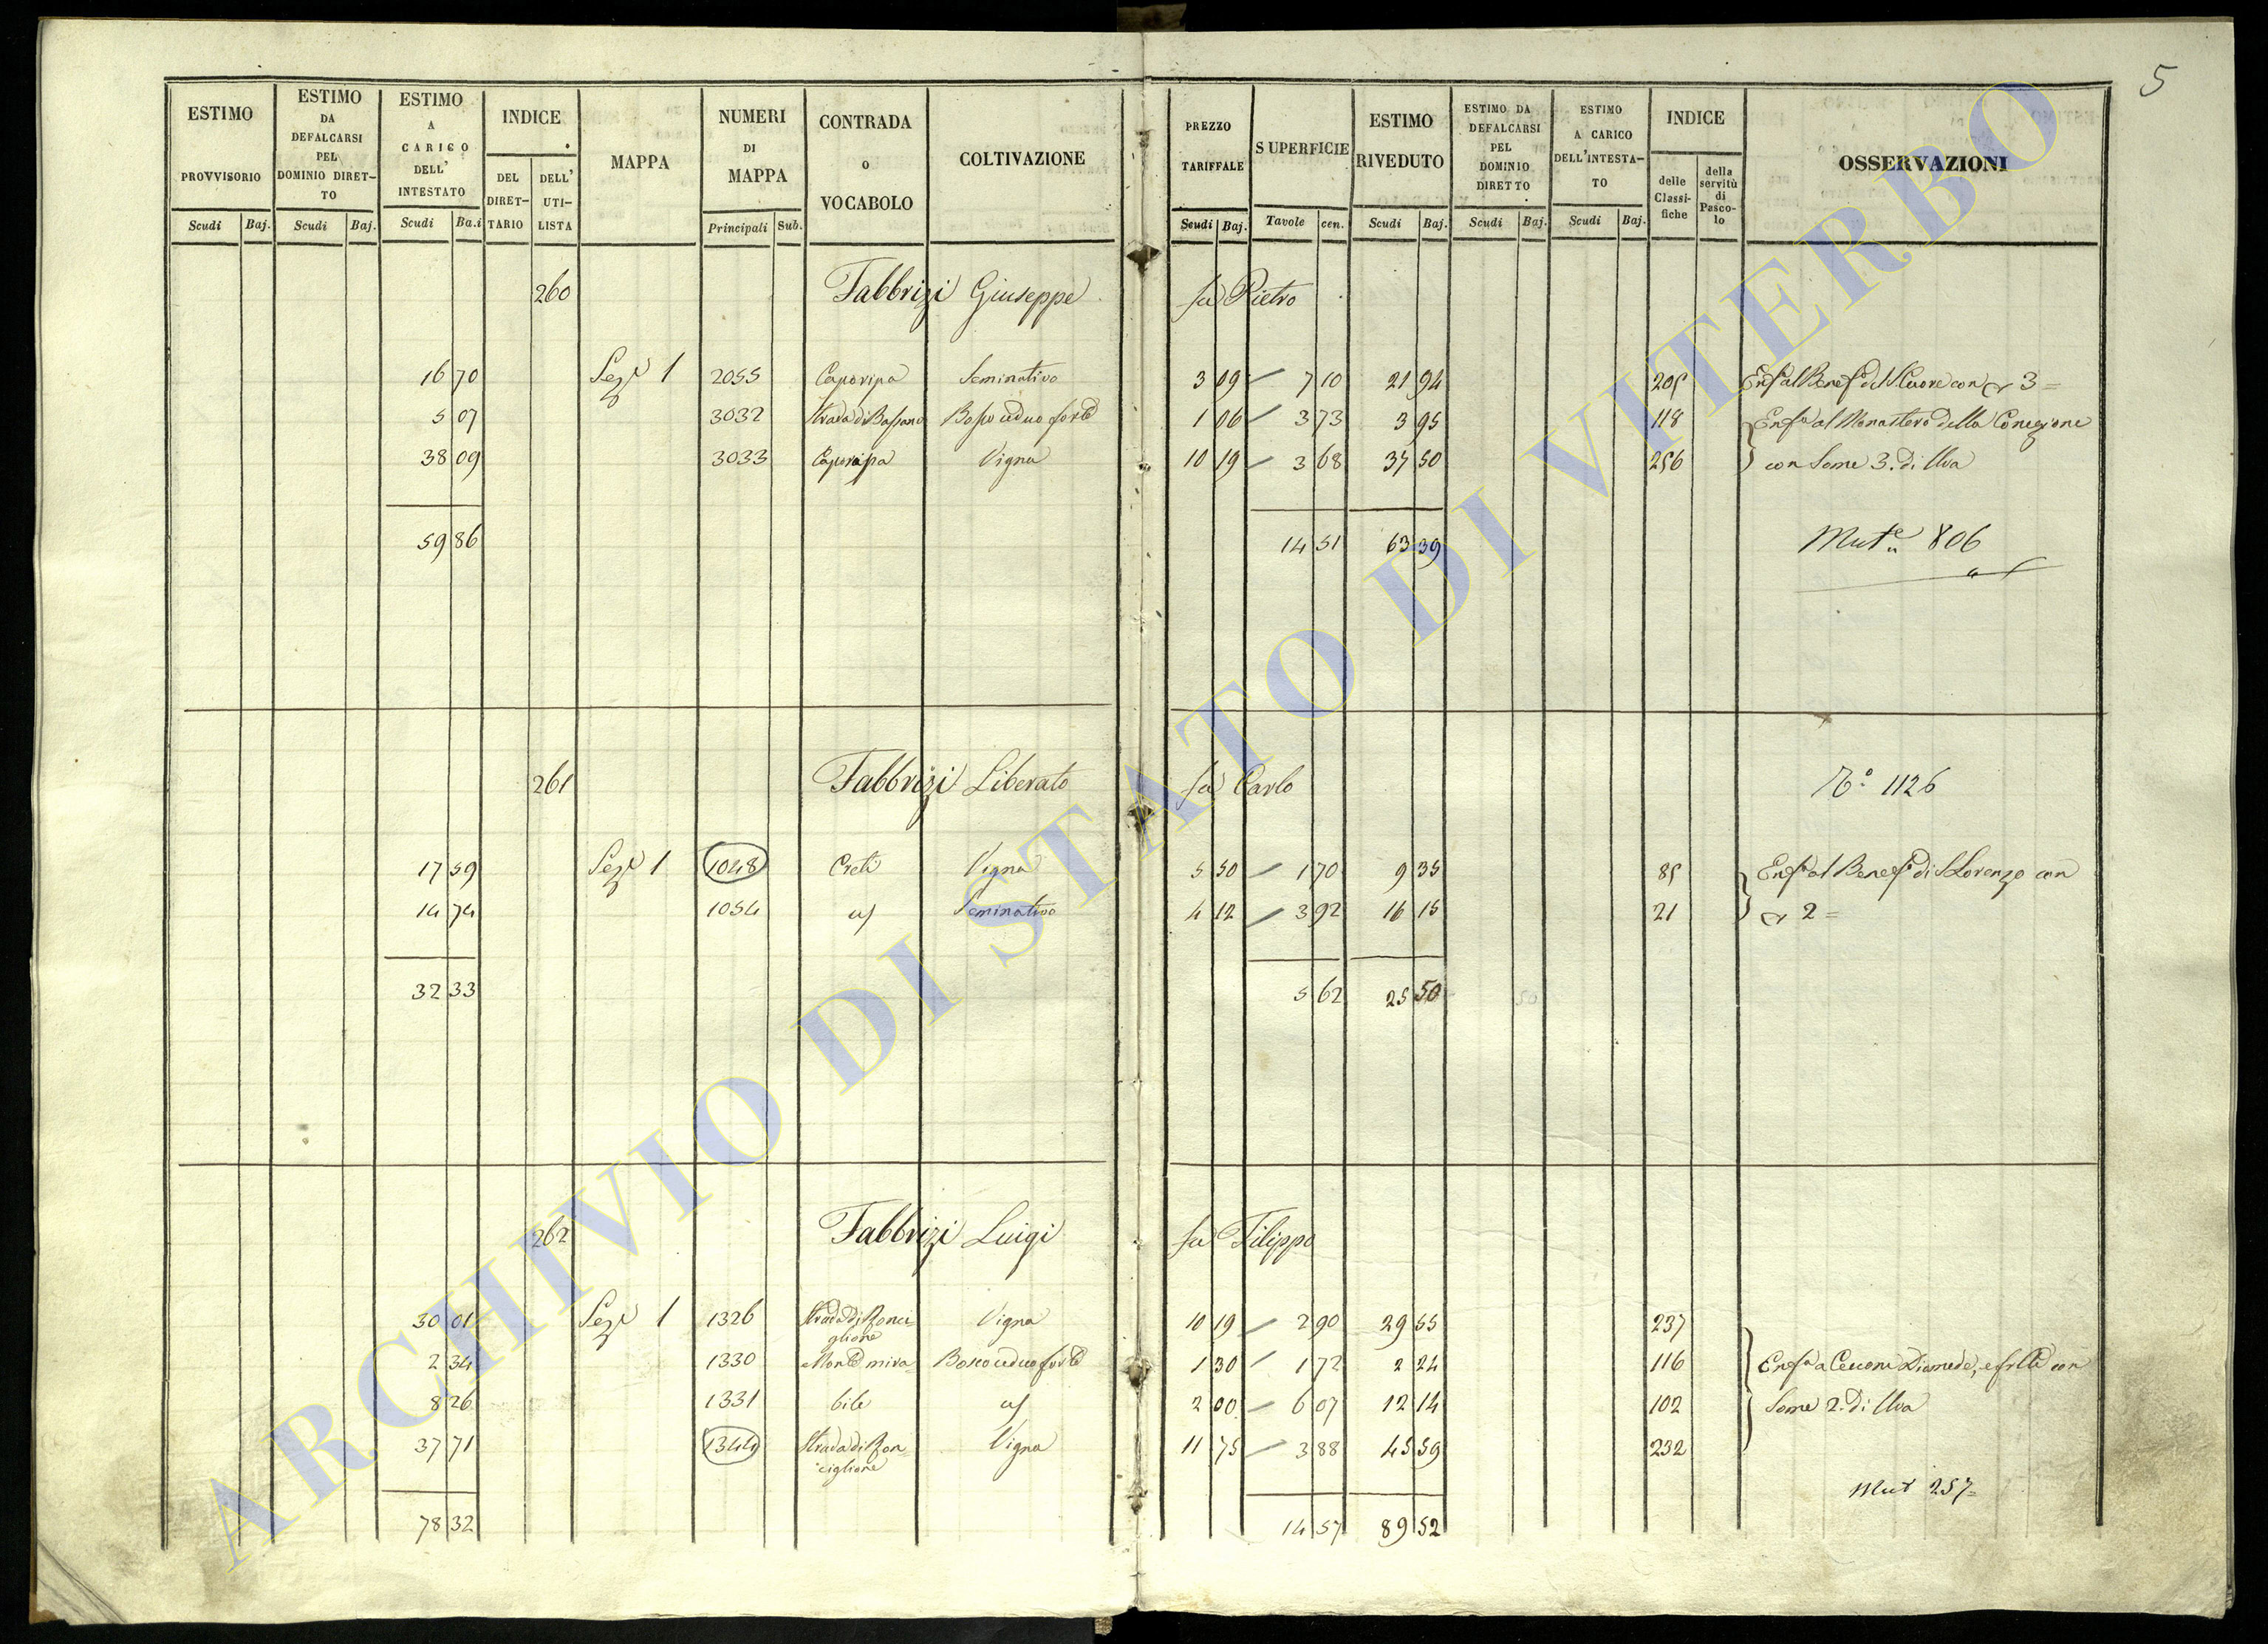 5
ESTIMO PROVVISORIO
ESTIMO DA DEFALCARSI PEL DOMINIO DIRET-TO
ESTIMO A CARICO DELL' INTESTATO
INDICE
DEL DIRET-TARIO
DELL' UTI-LISTA
MAPPA
NUMERI DI MAPPA
CONTRADA o VOCABOLO
COLTIVAZIONE
PREZZO TARIFFALE
SUPERFICIE
ESTIMO RIVEDUTO
ESTIMO DA DEFALCARSI PEL DOMINIO DIRETTO
ESTIMO A CARICO DELL'INTESTA-TO
INDICE
delle Classi-fiche
della servitù di Pasco-lo
OSSERVAZIONI
Scudi Baj. Scudi Baj. Scudi Ba.i Principali Sub. Scudi Baj. Tavole cen. Scudi Baj. Scudi Baj. Scudi Baj.
260 Fabbrizi Giuseppe fu Pietro
16 70 Sez.e 1 2055 Caporipa Seminativo 3 09 7 10 21 94 205
5 07 3032 Strada di Bassano Bosco ceduo forte 1 06 3 73 3 95 118 Enf.a al Monastero della Concezione
38 09 3033 Caporipa Vigna 10 19 3 68 37 50 256 con Some 3. di Uva
59 86 14 51 63 39 Mut.e 806
261 Fabbrizi Liberato fu Carlo N.° 1126
17 59 Sez.e 1 1048 Creti Vigna 5 50 1 70 9 35 85 Enf.a al Benef.o di S. Lorenzo con
14 74 1054 Seminativo 4 12 3 92 16 15 21 2 =
32 33 5 62 25 50
262 Fabbrizi Luigi fu Filippo
30 01 Sez.e 1 1326 Strada di Ronci-glione Vigna 10 19 2 90 29 55 237
2 34 1330 Monte mira- Bosco ceduo forte 1 30 1 72 2 24 116 Enf.a a Cecconi Diomede, e f.lli con
8 26 1331 bile 2 00 6 07 12 14 102 Some 2. di Uva
37 71 1344 Strada di Ron-ciglione Vigna 11 75 3 88 45 59 232
Mut 257=
78 32 14 57 89 52
ARCHIVIO DI STATO DI VITERBO